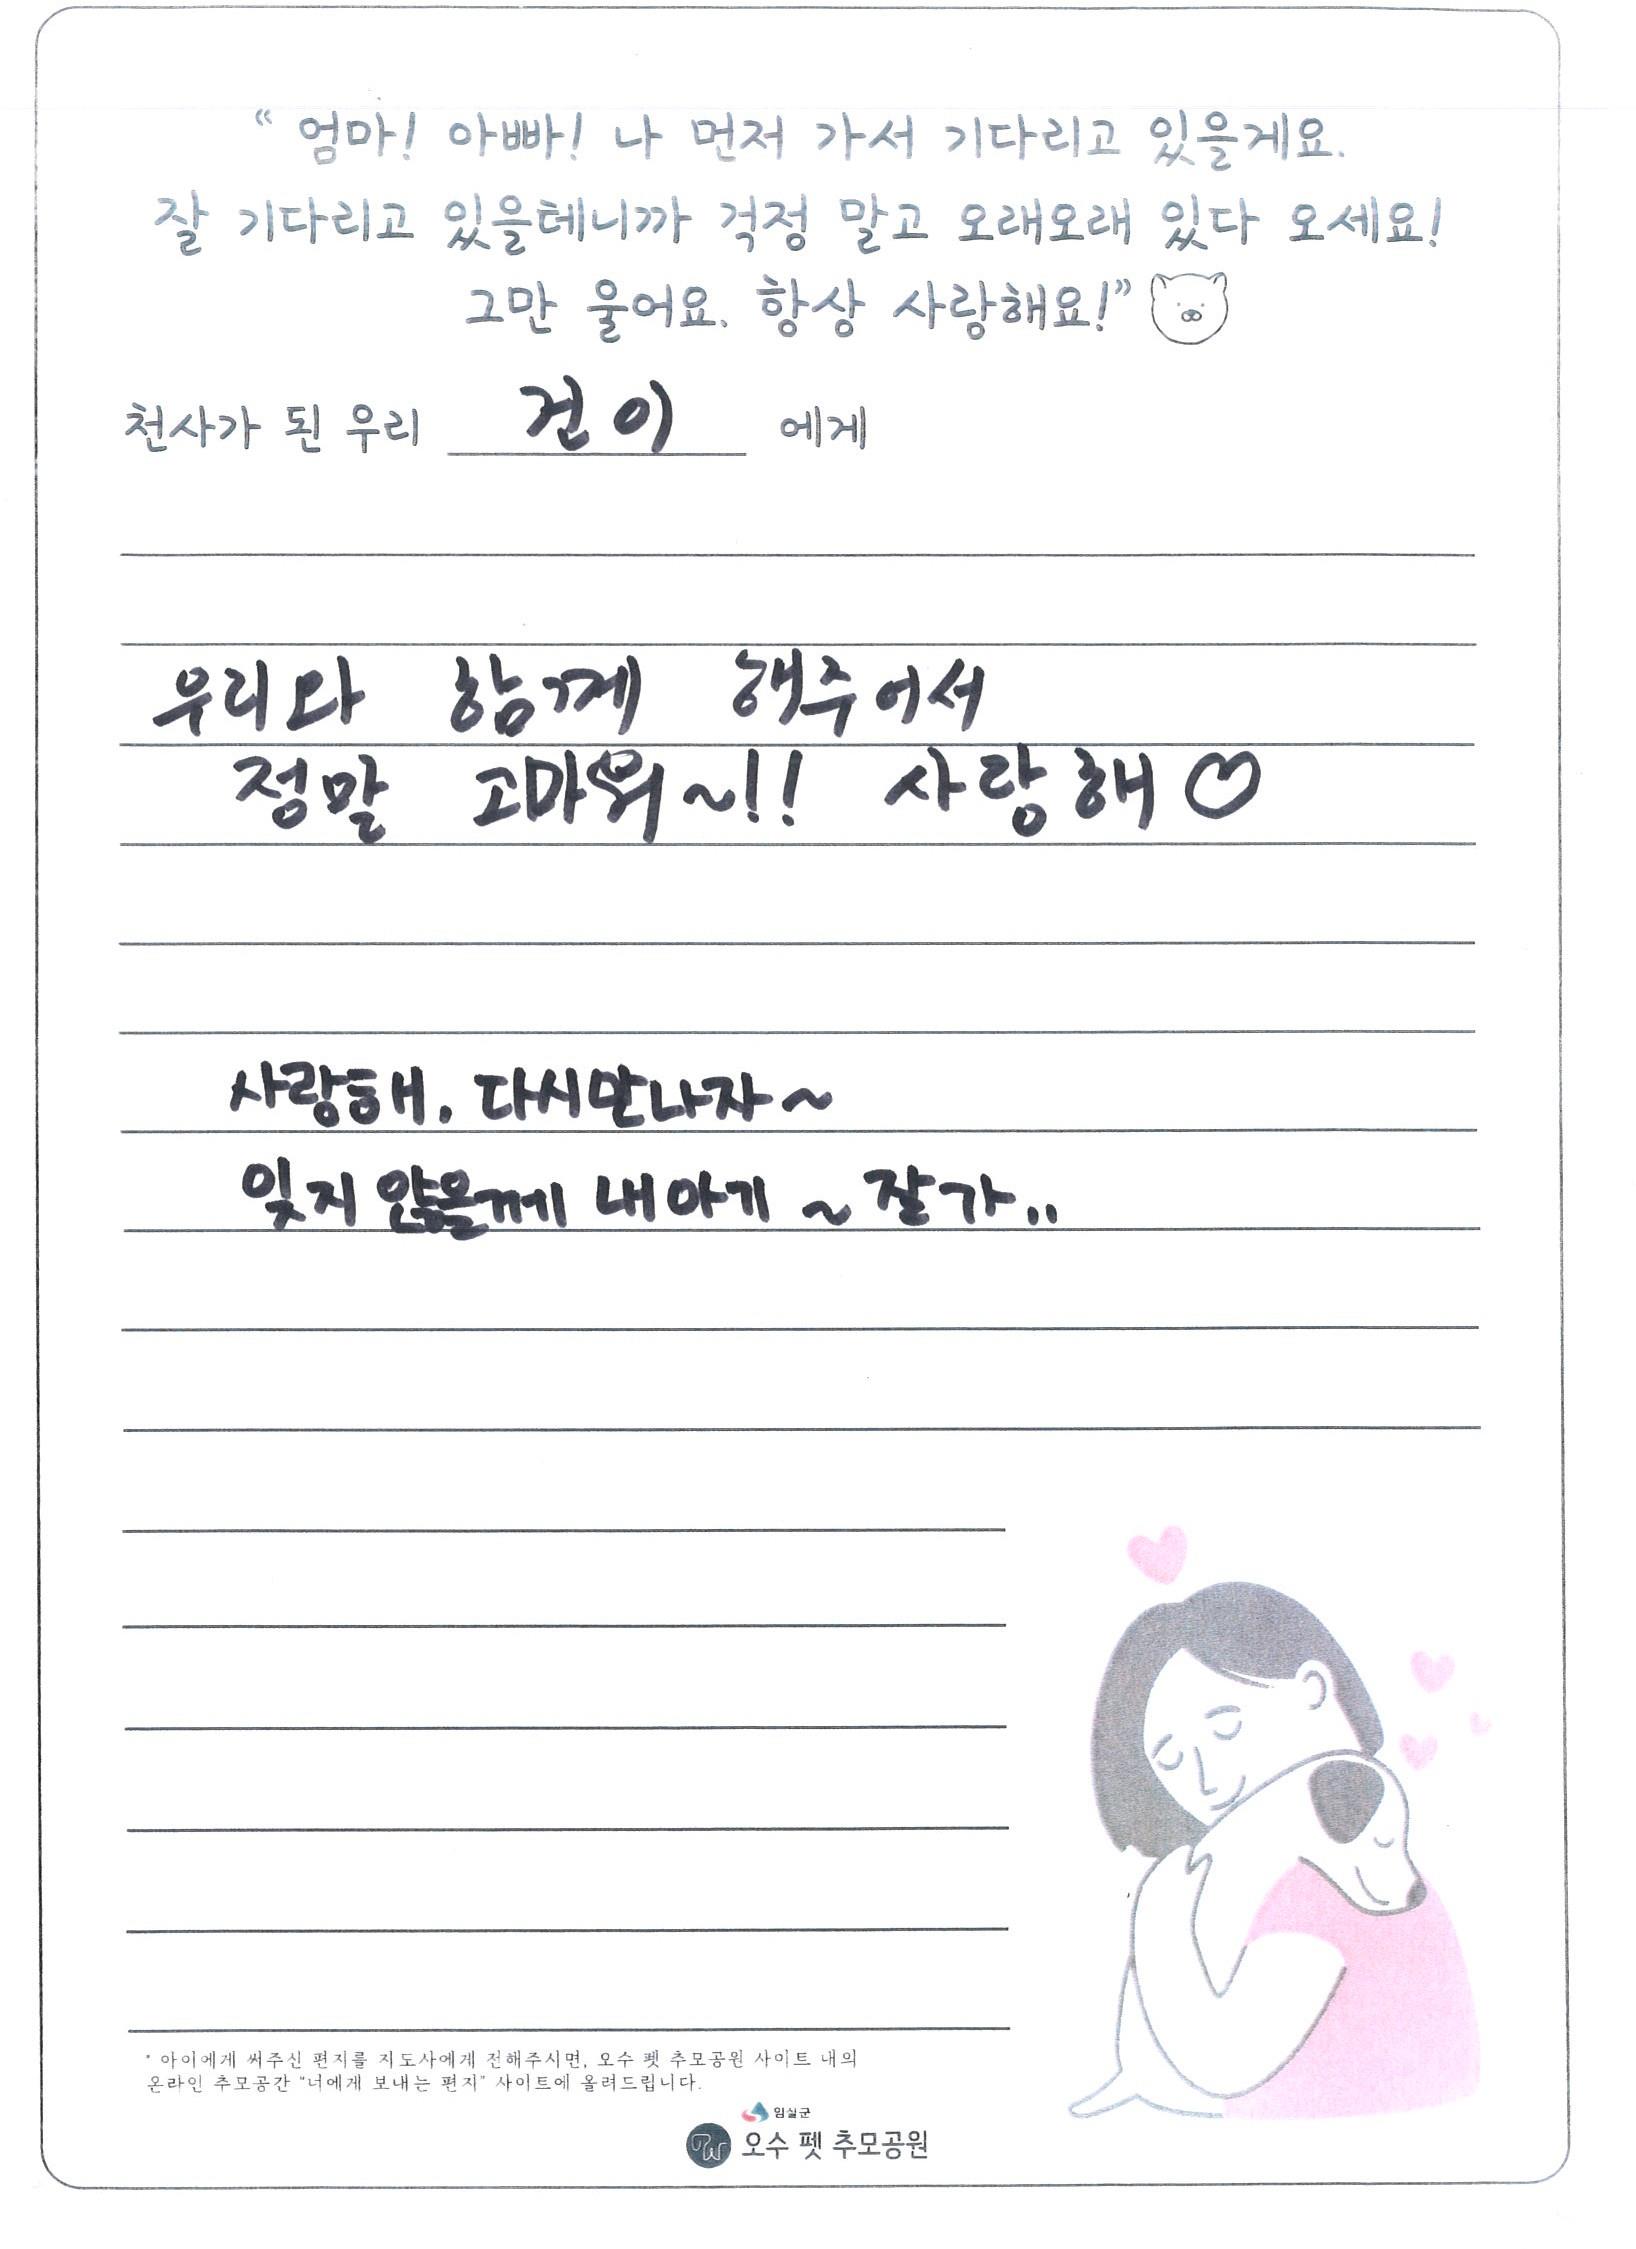 “ 엄마! 아빠! 나 먼저 가서 기다리고 있을게요.
잘 기다리고 있을테니까 걱정 말고 오래오래 있다 오세요!
그만 울어요. 항상 사랑해요!”
천사가 된 우리 건이 에게
우리와 함께 해주어서
정말 고마워~!! 사랑해♡
사랑해. 다시만나자~
잊지 않을께 내아기~잘가..
* 아이에게 써주신 편지를 지도사에게 전해주시면, 오수 펫 추모공원 사이트 내의
온라인 추모공간 “너에게 보내는 편지” 사이트에 올려드립니다.
임실군
PW 오수 펫 추모공원